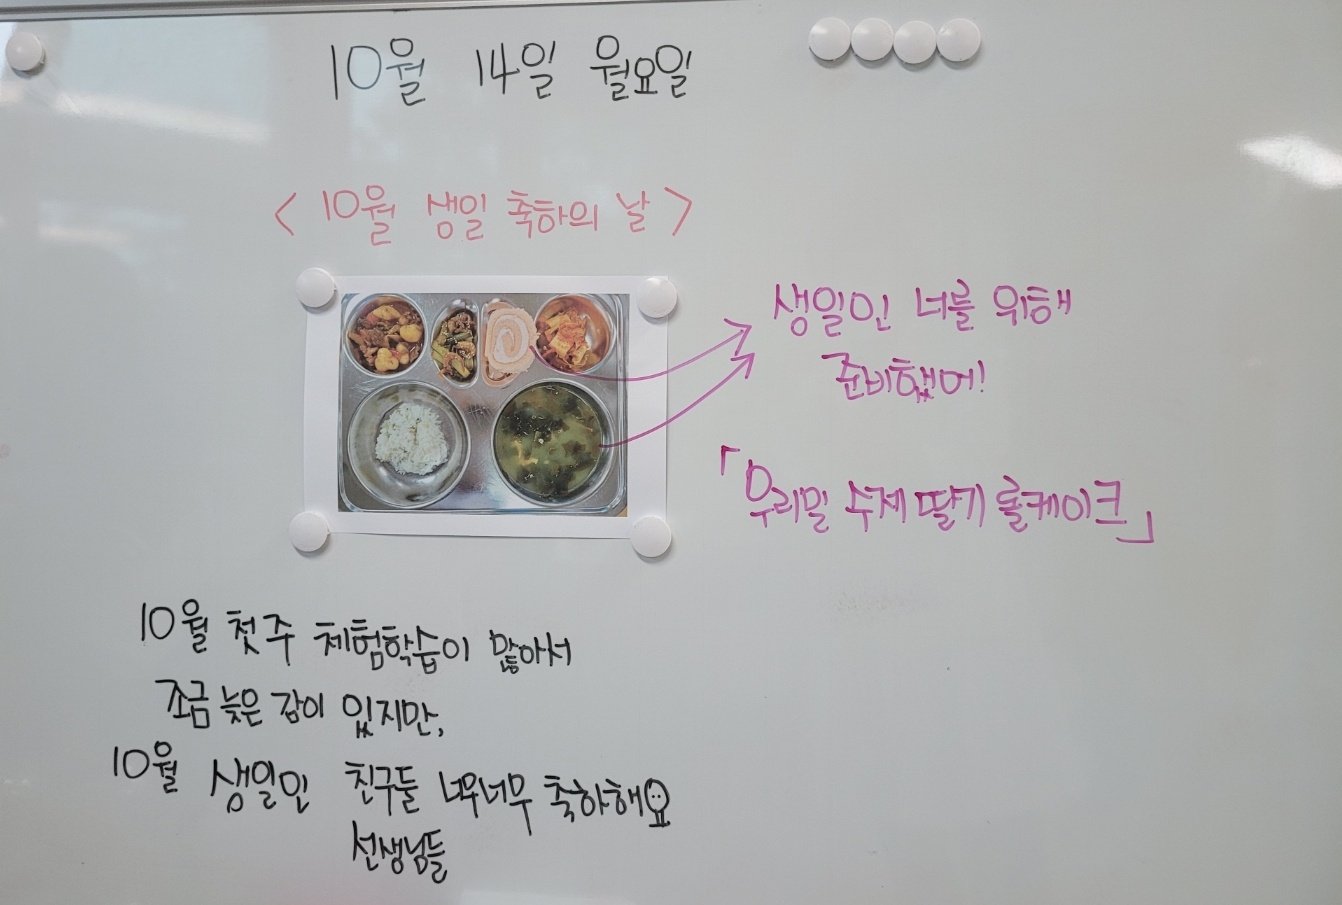 10월 14일 월요일
< 10월 생일 축하의 날 >
생일인 너를 위해
준비했어!
「우리밀 수제 딸기 롤케이크」
10월 첫주 체험학습이 많아서
조금 늦은 감이 있지만,
10월 생일인 친구들 너무너무 축하해요
선생님들